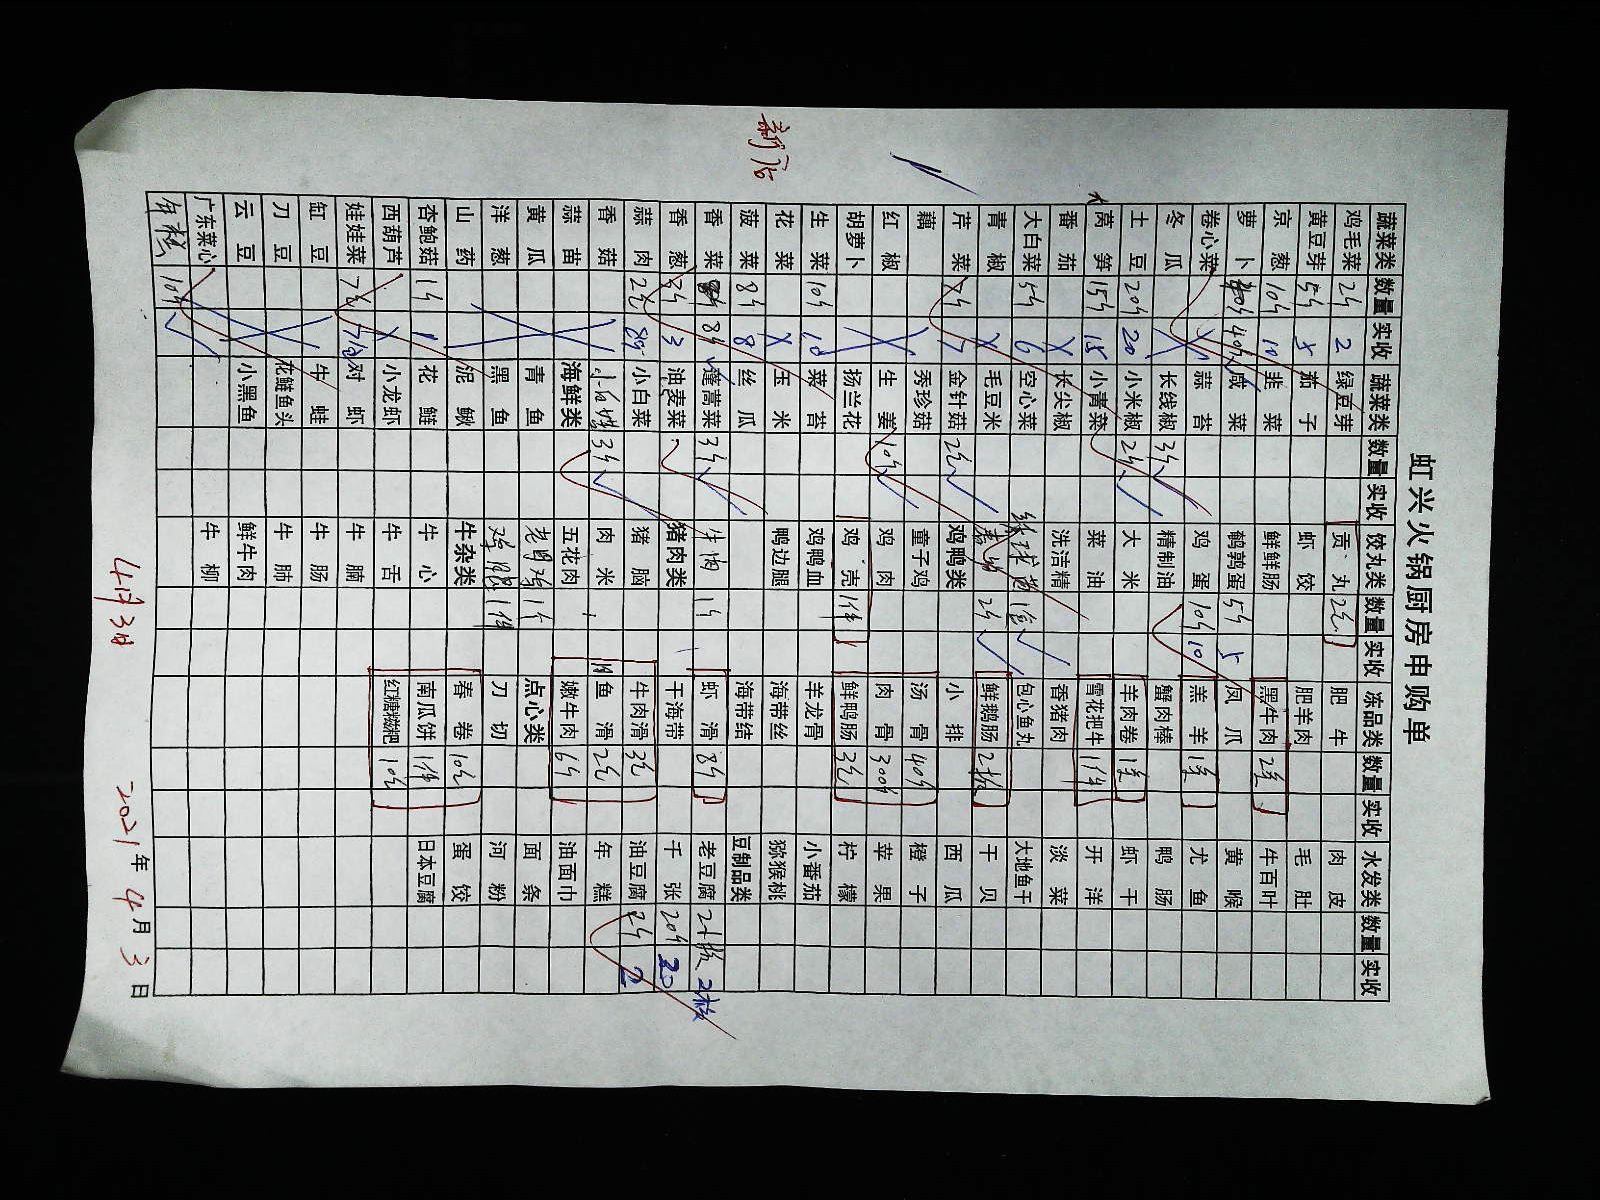 虹兴火锅厨房申购单
蔬菜类 数量 实收 蔬菜类 数量 实收 饺丸类 数量 实收 冻品类 数量 实收 水发类 数量 实收
鸡毛菜 2斤 2 绿豆芽 贡丸 2包 肥牛 肉皮
黄豆芽 5斤 5 茄子 虾饺 肥羊肉 毛肚
京葱 10斤 10 韭菜 鲜鲜肠 黑牛肉 2条 牛百叶
萝卜 40斤 咸菜 鹌鹑蛋 5斤 5 凤爪 黄喉
卷心菜 蒜苔 鸡蛋 10斤 10 羔羊 1条 尤鱼
冬瓜 长线椒 3斤 精制油 蟹肉棒 鸭肠
土豆 20斤 20 小米椒 2斤 大米 羊肉卷 1条 虾干
莴笋 15斤 15 小青菜 菜油 雪花把牛 1件 开洋
番茄 长尖椒 洗洁精 香猪肉 淡菜
大白菜 5斤 6 空心菜 绣球菌 1包 包心鱼丸 大地鱼干
青椒 毛豆米 2斤 鲜鹅肠 2板 干贝
芹菜 7斤 7 金针菇 2包 鸡鸭类 小排 西瓜
藕 秀珍菇 童子鸡 汤骨 40斤 橙子
红椒 生姜 10斤 鸡肉 肉骨 300斤 苹果
胡萝卜 扬兰花 鸡壳 1件 鲜鸭肠 3包 柠檬
生菜 10斤 10 菜苔 鸡鸭血 羊龙骨 小番茄
花菜 玉米 鸭边腿 海带丝 猕猴桃
菠菜 8斤 8 丝瓜 海带结 豆制品类
香菜 8斤 蓬蒿菜 3斤 牛肉 1斤 虾滑 8斤 老豆腐 2板 2板
香葱 3斤 3 油麦菜 猪肉类 干海带 千张 20斤 20
蒜肉 2包 小白菜 猪脑 牛肉滑 3包 油豆腐 2斤 2
香菇 小白蛤 3斤 肉米 鱼滑 2包 年糕
蒜苗 海鲜类 五花肉 嫩牛肉 6斤 油面巾
黄瓜 青鱼 老母鸡 点心类 面条
洋葱 黑鱼 鸡腿 1件 刀切 河粉
山药 泥鳅 牛杂类 春卷 10包 蛋饺
杏鲍菇 1斤 1 花鲢 牛心 南瓜饼 1件 日本豆腐
西葫芦 小龙虾 牛舌 红糖糍粑 10包
娃娃菜 7包 7包 对虾 牛腩
缸豆 牛蛙 牛肠
刀豆 花鲢鱼头 牛肺
云豆 小黑鱼 鲜牛肉
广东菜心 牛柳
年糕 10斤
新店
4月3日 2021年4月3日